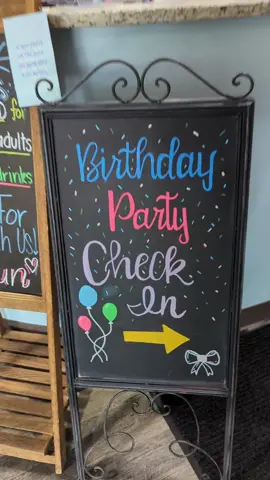 Birthday
Party
Check
In
adults
drinks
For
h Us!
un